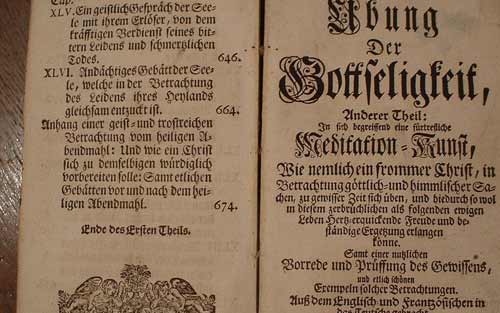 Cap.
XLV. Ein geistlich Gespräch der See-
le mit ihrem Erlöser, von dem
kräfftigen Verdienst seines bit-
tern Leidens und schmertzlichen
Todes. 646.
XLVI. Andächtiges Gebätt der See-
le, welche in der Betrachtung
des Leidens ihres Heylands
gleichsam entzuckt ist. 664.
Anhang einer geist- und trostreichen
Betrachtung vom heiligen A-
bendmahl: Und wie ein Christ
sich zu demselbigen würdiglich
vorbereiten solle: Samt etlichen
Gebätten vor und nach dem hei-
ligen Abendmahl. 674.
Ende des Ersten Theils.
Übung
Der
Gottseligkeit,
Anderer Theil:
In sich begreiffend eine fürtrefliche
Meditation-Kunst,
Wie nemlich ein frommer Christ, in
Betrachtung göttlich- und himmlischer Sa-
chen, zu gewisser Zeit sich üben, und hiedurch so wol
in diesem zerbrüchlichen als folgenden ewigen
Leben Hertz-erquickende Freude und be-
ständige Ergetzung erlangen
könne.
Samt einer nutzlichen
Vorrede und Prüffung des Gewissens,
und etlich schönen
Exempeln solcher Betrachtungen.
Auß dem Englisch- und Frantzösischen in
das Teutsche gebracht